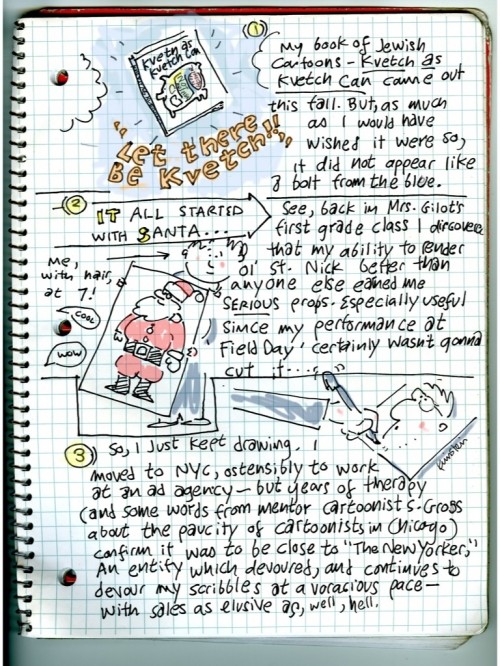 Kvetch as
Kvetch Can
Let there
Be Kvetch!!
1
My book of Jewish
Cartoons - Kvetch as
Kvetch Can came out
this fall. But, as much
as I would have
wished it were so,
it did not appear like
a bolt from the blue.
2
IT ALL STARTED
WITH SANTA...
Me,
with hair,
at 7!
COOL
WOW
See, back in Mrs. Gilot's
first grade class I discovered
that my ability to render
ol' St. Nick better than
anyone else earned me
SERIOUS props. Especially useful
since my performance at
'Field Day' certainly wasn't gonna
cut it...
3
So, I just kept drawing. I
moved to NYC, ostensibly to work
at an ad agency - but years of therapy
(and some words from mentor cartoonist S. Gross
about the paucity of cartoonists in Chicago)
confirm it was to be close to "The New Yorker,"
An entity which devoured, and continues to
devour my scribbles at a voracious pace -
with sales as elusive as, well, hell.